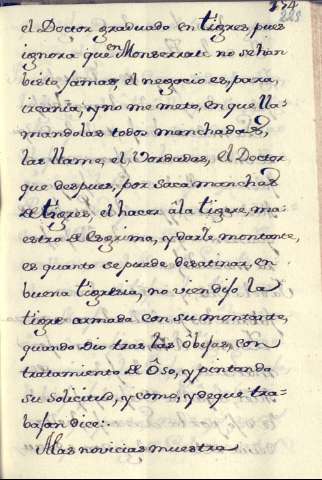 274
223
el Doctor graduado en tigres, pues
ignora que en Monserrate no se han
bisto jamas, el negocio es, para,
ircania, y no me meto, en que lla-
mandolas todos manchadas,
las llame, el Vordadas, El Doctor
que despues, por saca manchas
de tigres, el hacer â la tigre, ma-
estro de Esgrima, y darle montante,
es quanto se puede desatinar en
buena tigresia, no vien dijo la
tigre armada con su montante,
quando dio tras las ôbejas, con
tratamiento de Ôso, y pintando
su solicitud, y como, y de que tra-
bajan dice:
Alas novicias muestra